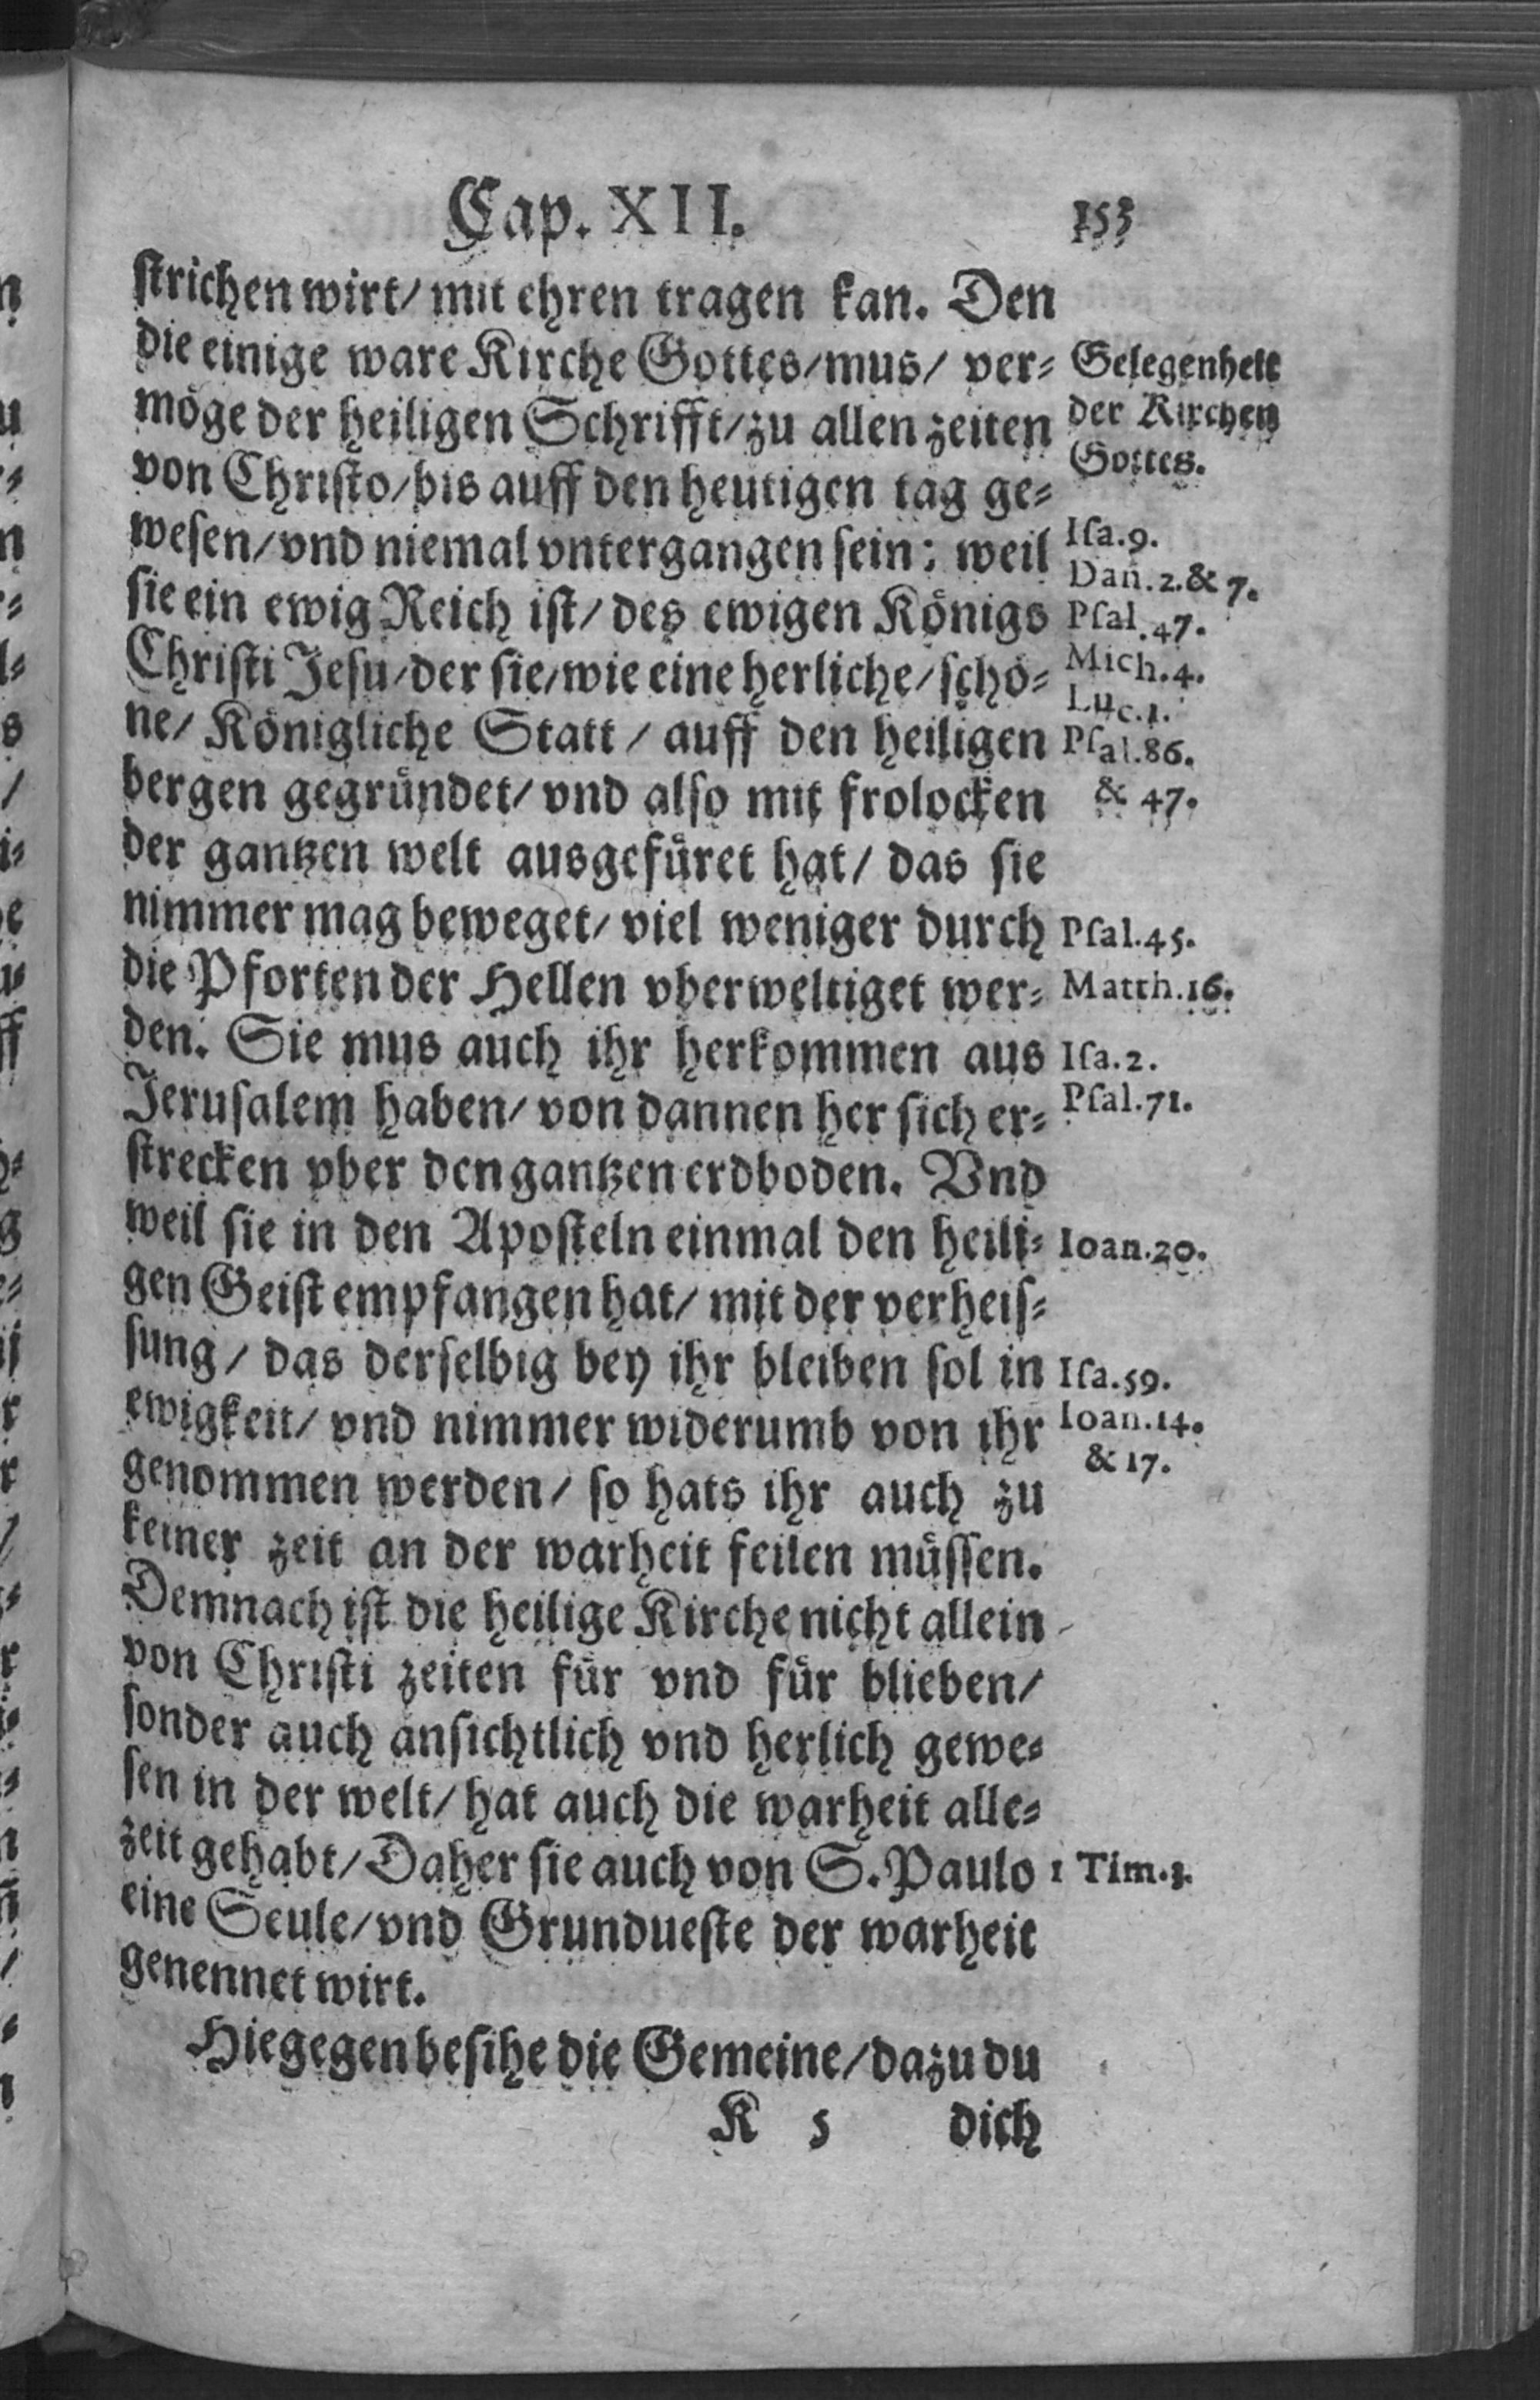 Cap. XII.
153
strichen wirt/ mit ehren tragen kan. Den
die einige ware Kirche Gottes/mus/ ver⸗
möge der heiligen Schrifft/zu allen zeiten
von Christo/bis auff den heutigen tag ge⸗
wesen/vnd niemal vntergangen sein: weil
sie ein ewig Reich ist/ des ewigen Königs
Christi Jesu/der sie/wie eine herliche/schö⸗
ne/ Königliche Statt / auff den heiligen
bergen gegründet/ vnd also mit frolocken
der gantzen welt ausgefüret hat/ das sie
nimmer mag beweget/ viel weniger durch
die Pforten der Hellen vberweltiget wer⸗
den. Sie mus auch ihr herkommen aus
Jerusalem haben/ von dannen her sich er⸗
strecken vber den gantzen erdboden. Vnd
weil sie in den Aposteln einmal den heili⸗
gen Geist empfangen hat/ mit der verheis⸗
sung / das derselbig bey ihr bleiben sol in
ewigkeit/ vnd nimmer widerumb von ihr
genommen werden/ so hats ihr auch zu
keiner zeit an der warheit feilen müssen.
Demnach ist die heilige Kirche nicht allein
von Christi zeiten für vnd für blieben/
sonder auch ansichtlich vnd herlich gewe⸗
sen in der welt/ hat auch die warheit alle⸗
zeit gehabt/ Daher sie auch von S. Paulo
eine Seule/vnd Grundueste der warheit
genennet wirt.
Hiegegen besihe die Gemeine/dazu du
K 5 dich
Gelegenheit
der Kirchen
Gottes.
Isa.9.
Dan.2.& 7.
Psal.47.
Mich.4.
Luc.1.
Psal.86.
& 47.
Psal.45.
Matth.16.
Isa.2.
Psal.71.
Ioan.20.
Isa.59.
Ioan.14.
& 17.
1 Tim.3.